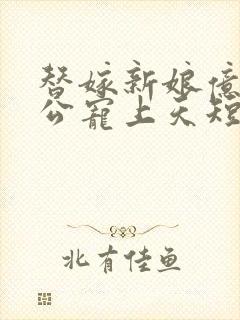 替嫁新娘億
公寵上天短
北有佳鱼